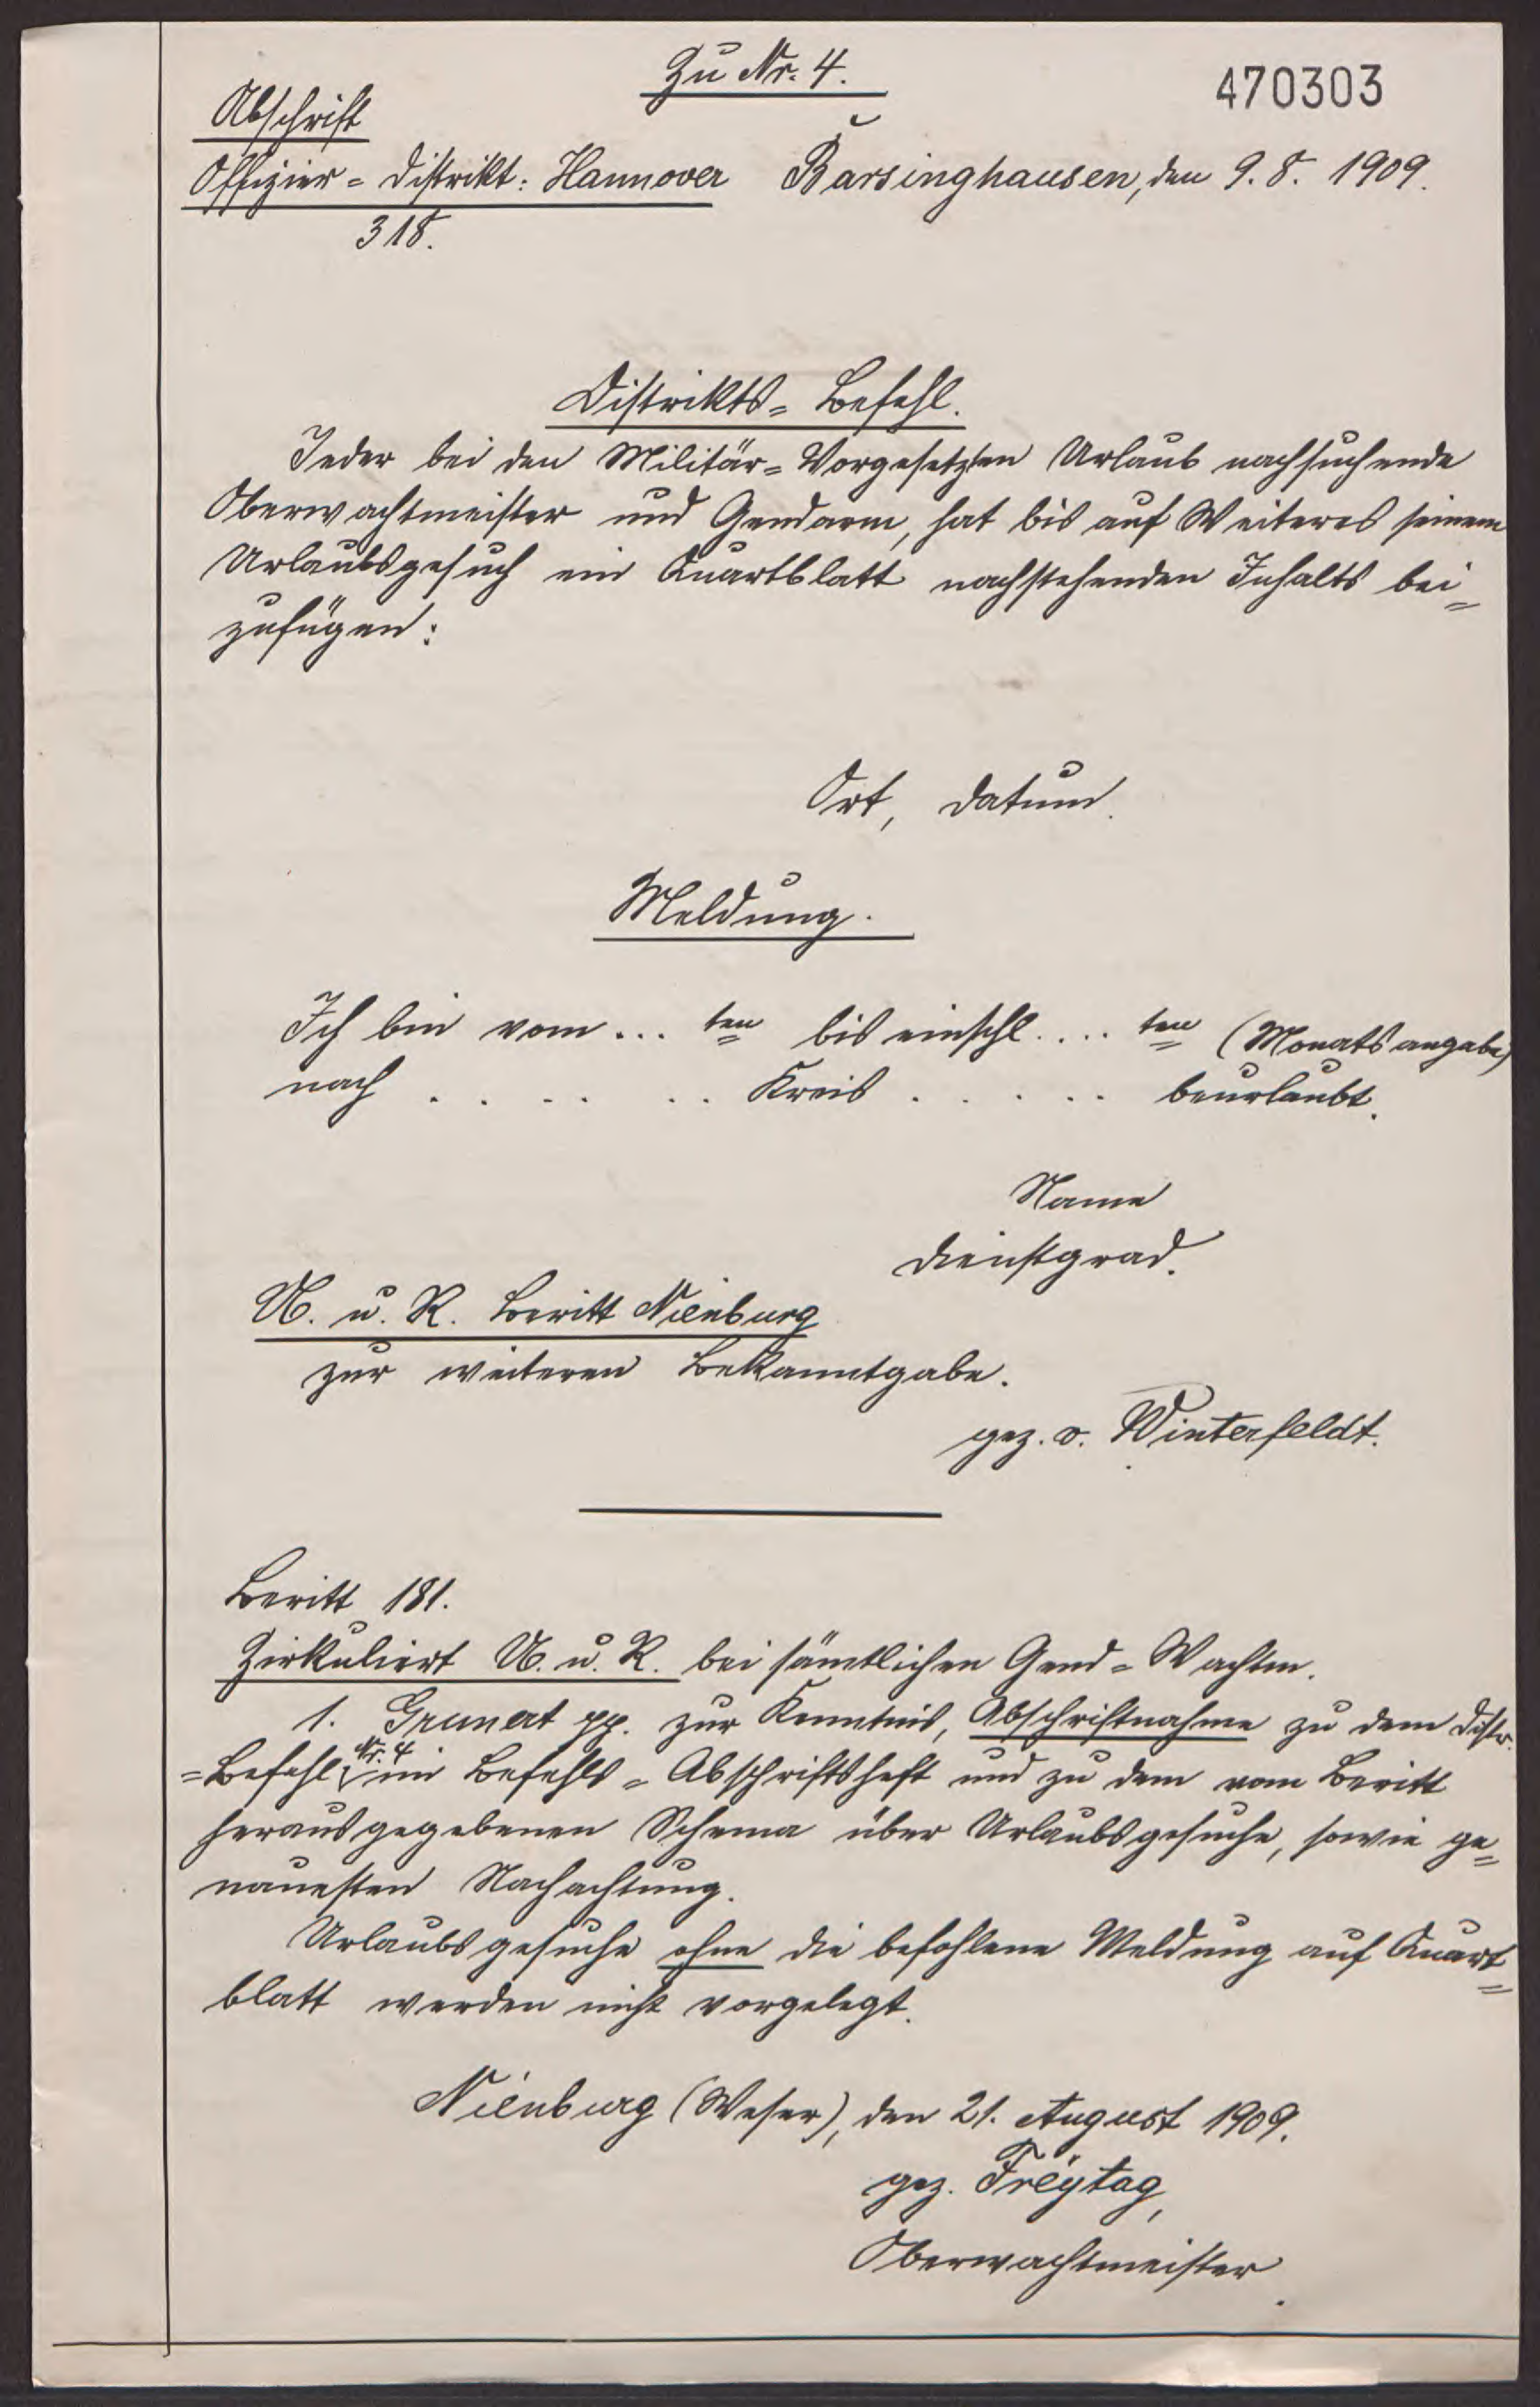 Zu Nr. 4.
470303
Abschrift
Offizier=Distrikt: Hannover Barsinghausen, den 9. 8. 1909.
318.
Distrikts=Befehl.
Jeder bei den Militär=Vorgesetzten Urlaub nachsuchende
Oberwachtmeister und Gendarm, hat bis auf Weiteres seinem
Urlaubsgesuch ein Quartblatt nachstehenden Inhalts bei=
zufügen:
Ort, Datum.
Meldung.
Ich bin vom ... ten bis einschl. ... ten (Monatsangabe)
nach . . . . . . Kreis . . . . . beurlaubt.
Name
Dienstgrad.
U. u. R. Beritt Nienburg
zur weiteren Bekanntgabe.
gez. v. Winterfeldt.
Beritt 181.
Zirkuliert U. u. R. bei sämtlichen Gend=Wachtm.
1. Grunert pp. zur Kenntnis, Abschriftnahme zu dem Distr.
=Befehl Nr. 4 im Befehls=Abschriftsheft und zu dem vom Beritt
herausgegebenen Schema über Urlaubsgesuche, sowie ge=
nauesten Nachachtung.
Urlaubsgesuche ohne die befohlene Meldung auf Quart=
blatt werden nicht vorgelegt.
Nienburg (Weser), den 21. August 1909.
gez. Freytag,
Oberwachtmeister.